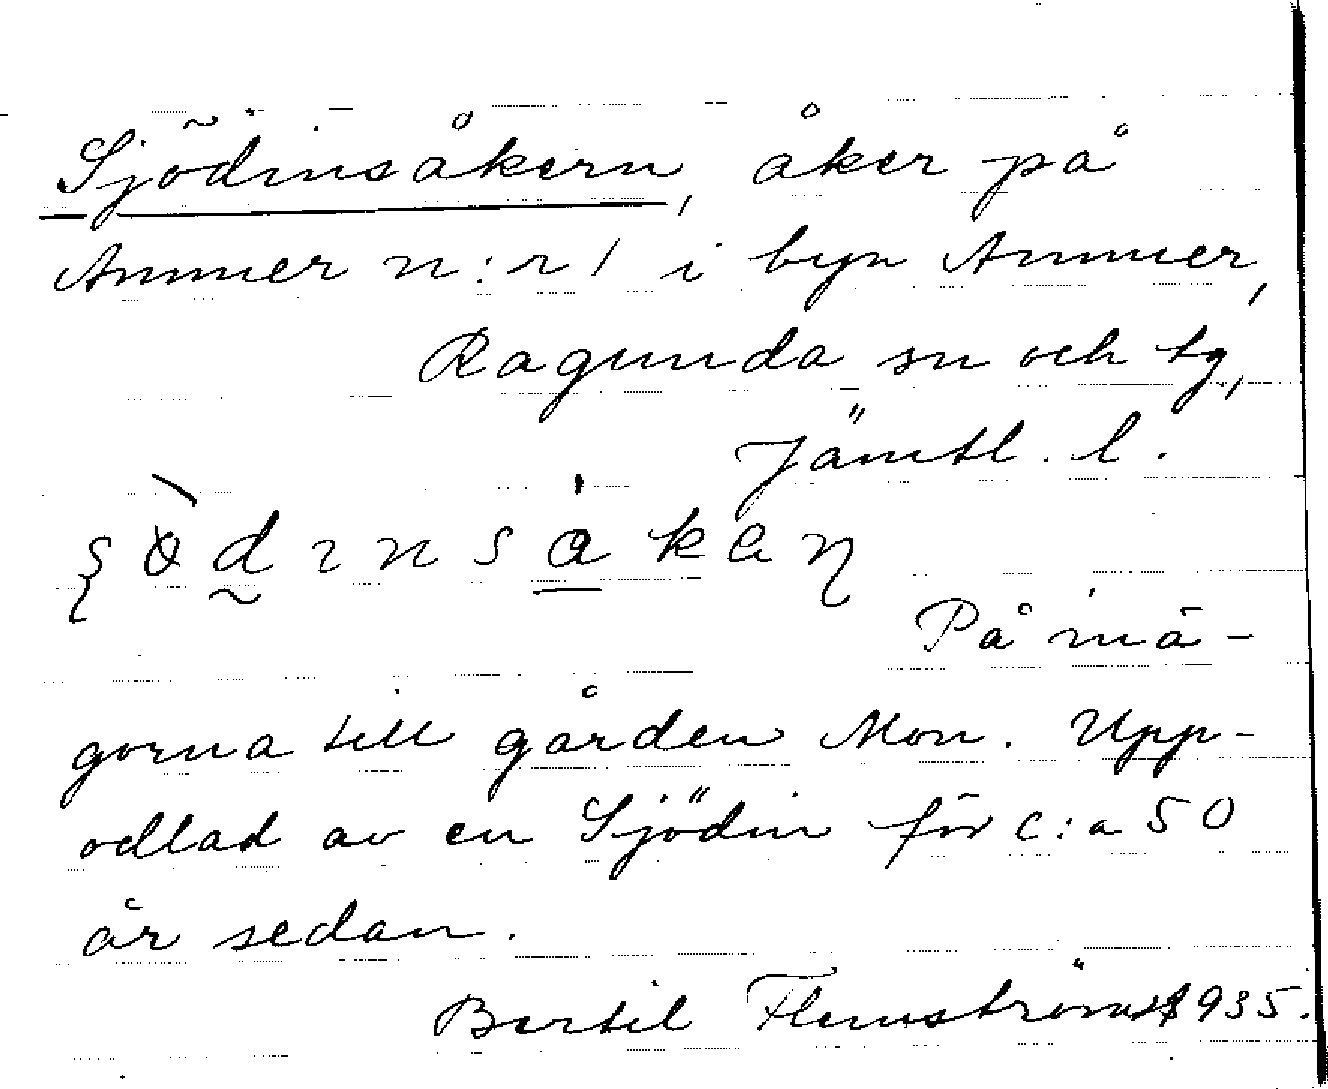 Sjödinsåkern, åker på
Ammer n:r 1 i byn Ammer,
Ragunda sn och tg,
Jämtl. l.
På mä-
gorna till gården Mon. Upp-
odlad av en Sjödin för c:a 50
år sedan.
Bertil Flemström 1935.